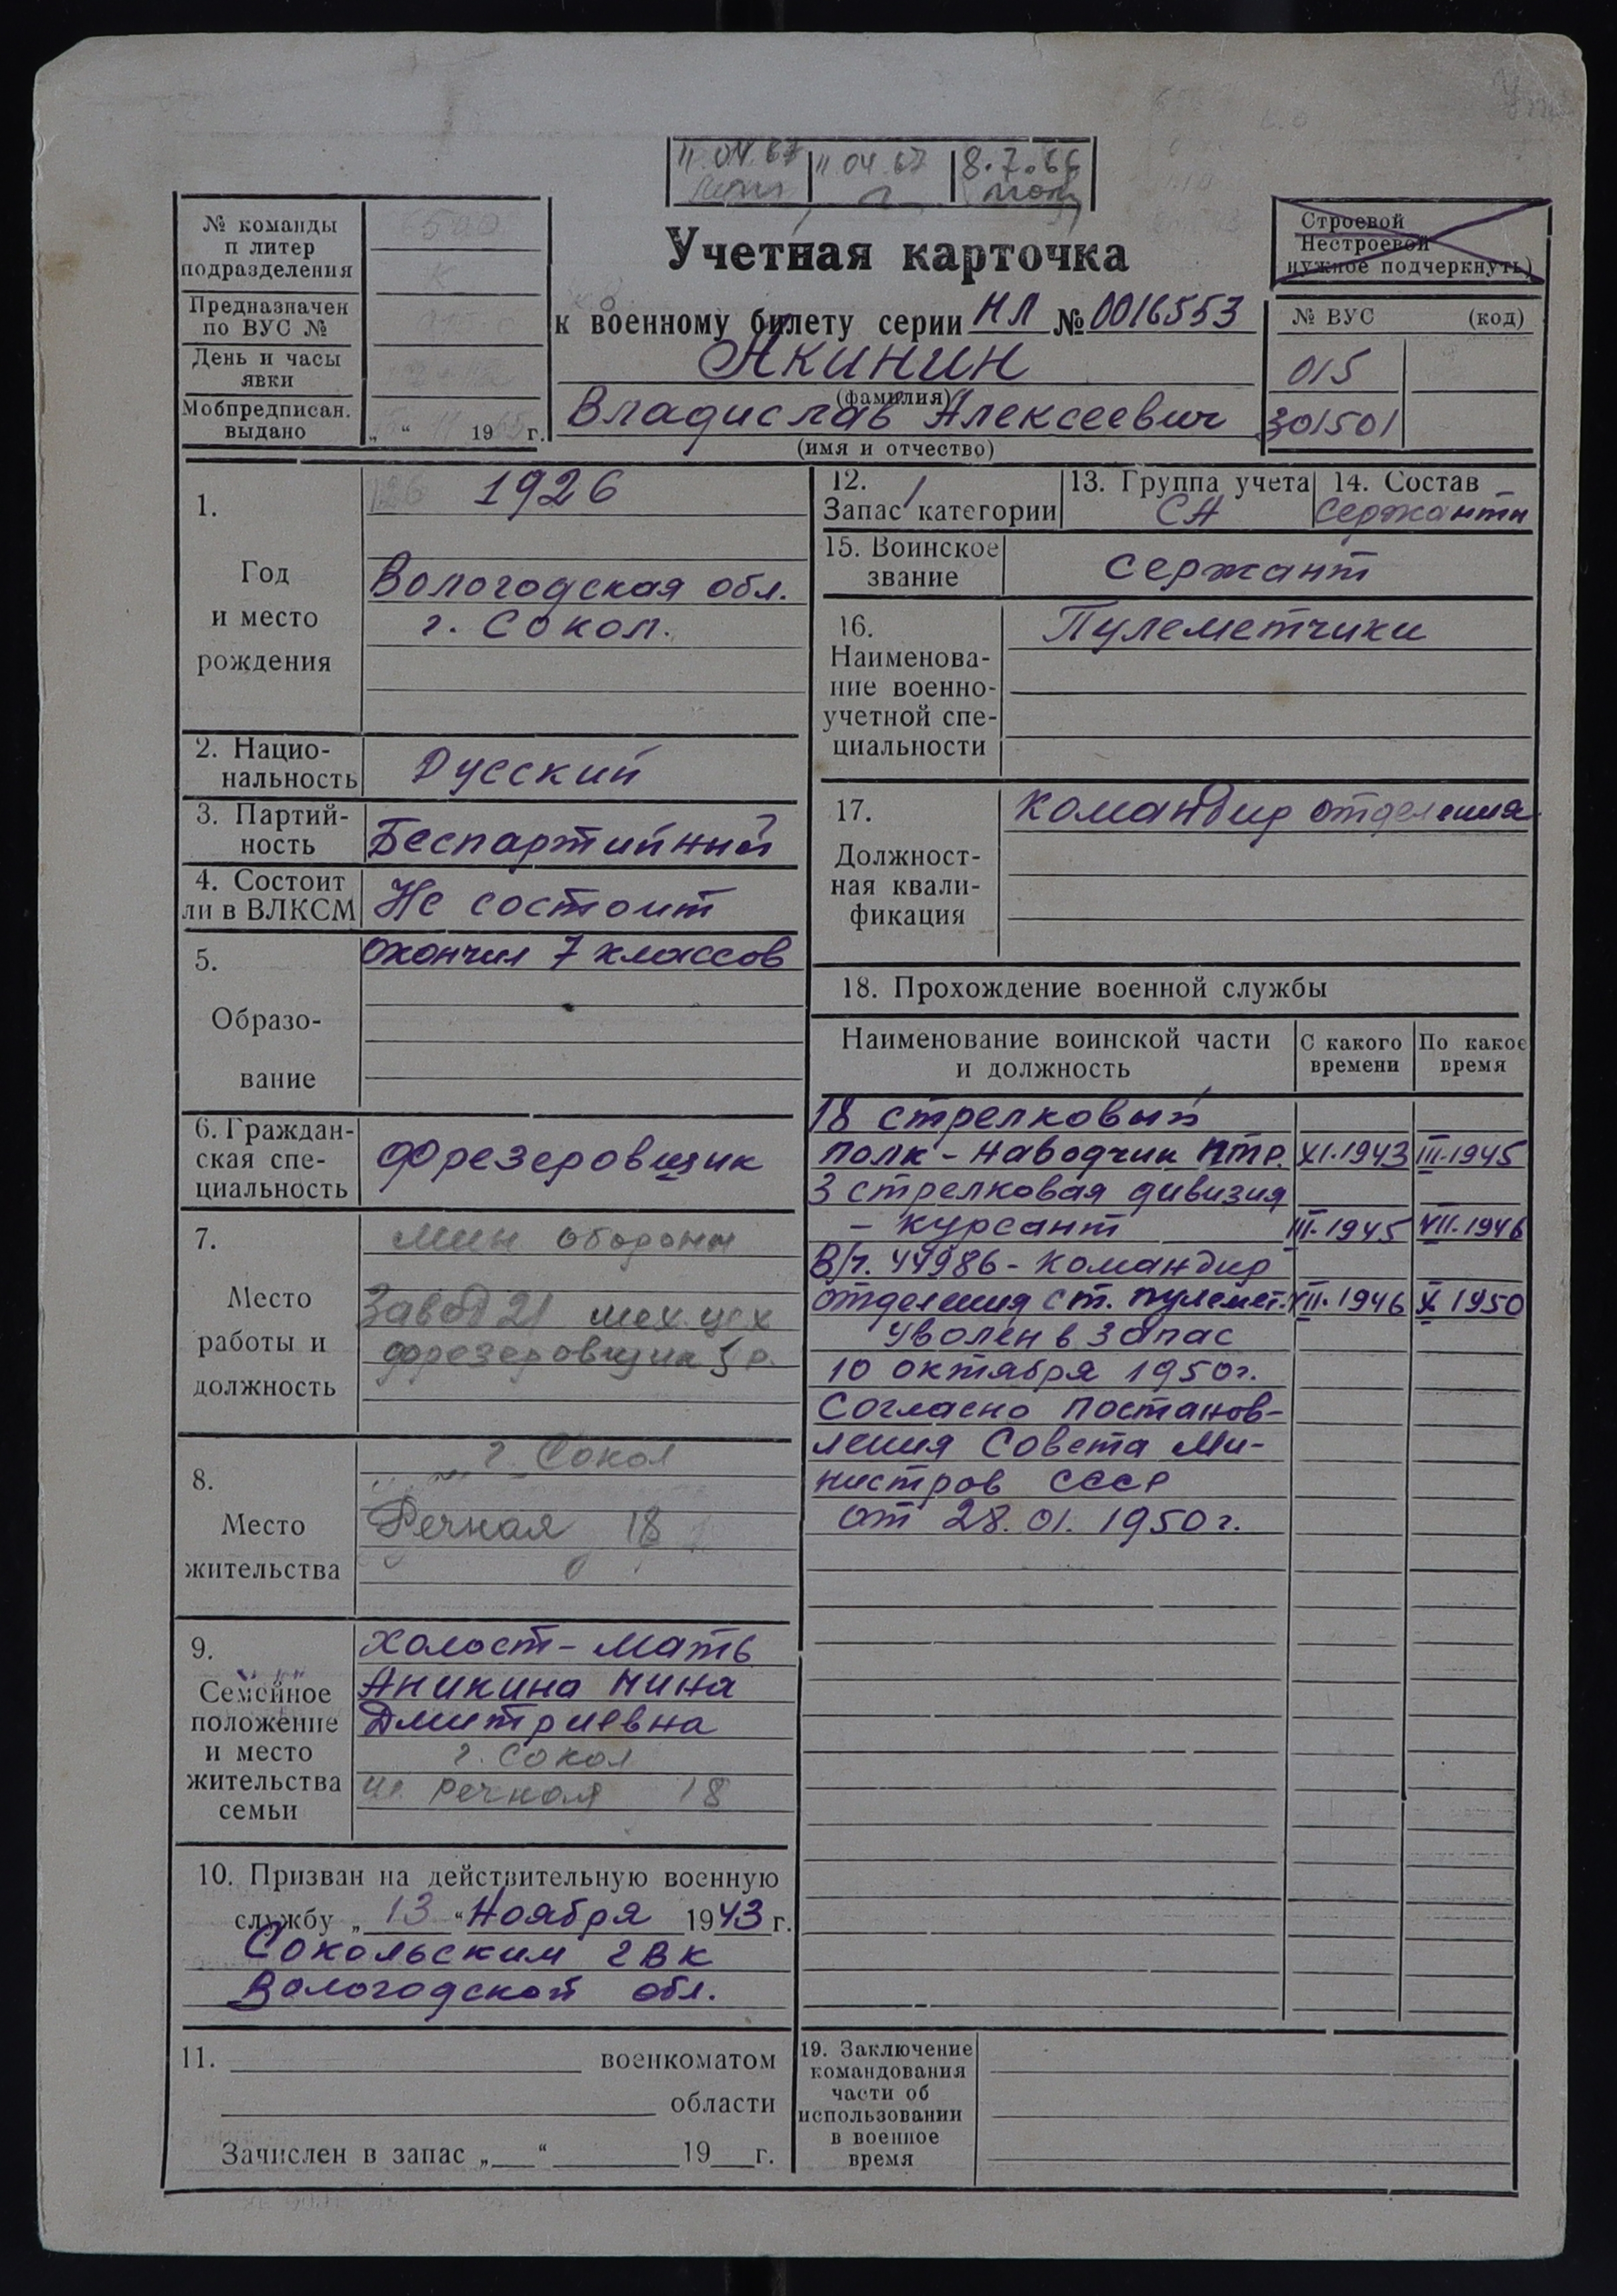 11.04.67 11.04.67 8.7.66
№ команды
п литер
подразделения
Предназначен
по ВУС №
День и часы
явки
Мобпредписан.
выдано
„ “ 19 г.
Учетная карточка
к военному билету серии НЛ № 0016553
Акинин
(фамилия)
Владислав Алексеевич
(имя и отчество)
Строевой
Нестроевой
нужное подчеркнуть)
№ ВУС (код)
015
301501
1.
Год
и место
рождения
1926
Вологодская обл.
г. Сокол.
2. Нацио-
нальность
Русский
3. Партий-
ность
Беспартийный
4. Состоит
ли в ВЛКСМ
Не состоит
5.
Образо-
вание
Окончил 7 классов
6. Граждан-
ская спе-
циальность
Фрезеровщик
7.
Место
работы и
должность
Мин обороны
Завод 21 мех. цех
фрезеровщик 5 р.
8.
Место
жительства
г. Сокол
Речная 18
9.
Семейное
положение
и место
жительства
семьи
Холост - мать
Аникина Нина
Дмитриевна
г. Сокол
ул. Речная 18
10. Призван на действительную военную
службу „ 13 “ Ноября 1943 г.
Сокольским ГВК
Вологодской обл.
11. военкоматом
области
Зачислен в запас „ “ 19 г.
12. 1
Запас категории
13. Группа учета
СА
14. Состав
Сержанты
15. Воинское
звание
Сержант
16.
Наименова-
ние военно-
учетной спе-
циальности
Пулеметчики
17.
Должност-
ная квали-
фикация
Командир отделения
18. Прохождение военной службы
Наименование воинской части
и должность
С какого
времени
По какое
время
18 стрелковый
полк - наводчик ПТР. XI.1943 III.1945
3 стрелковая дивизия
- курсант III.1945 VII.1946
В/ч. 44986 - Командир
отделения ст. пулемет. VII.1946 X 1950
Уволен в запас
10 октября 1950г.
Согласно постанов-
ления Совета Ми-
нистров СССР
от 28.01.1950г.
19. Заключение
командования
части об
использовании
в военное
время